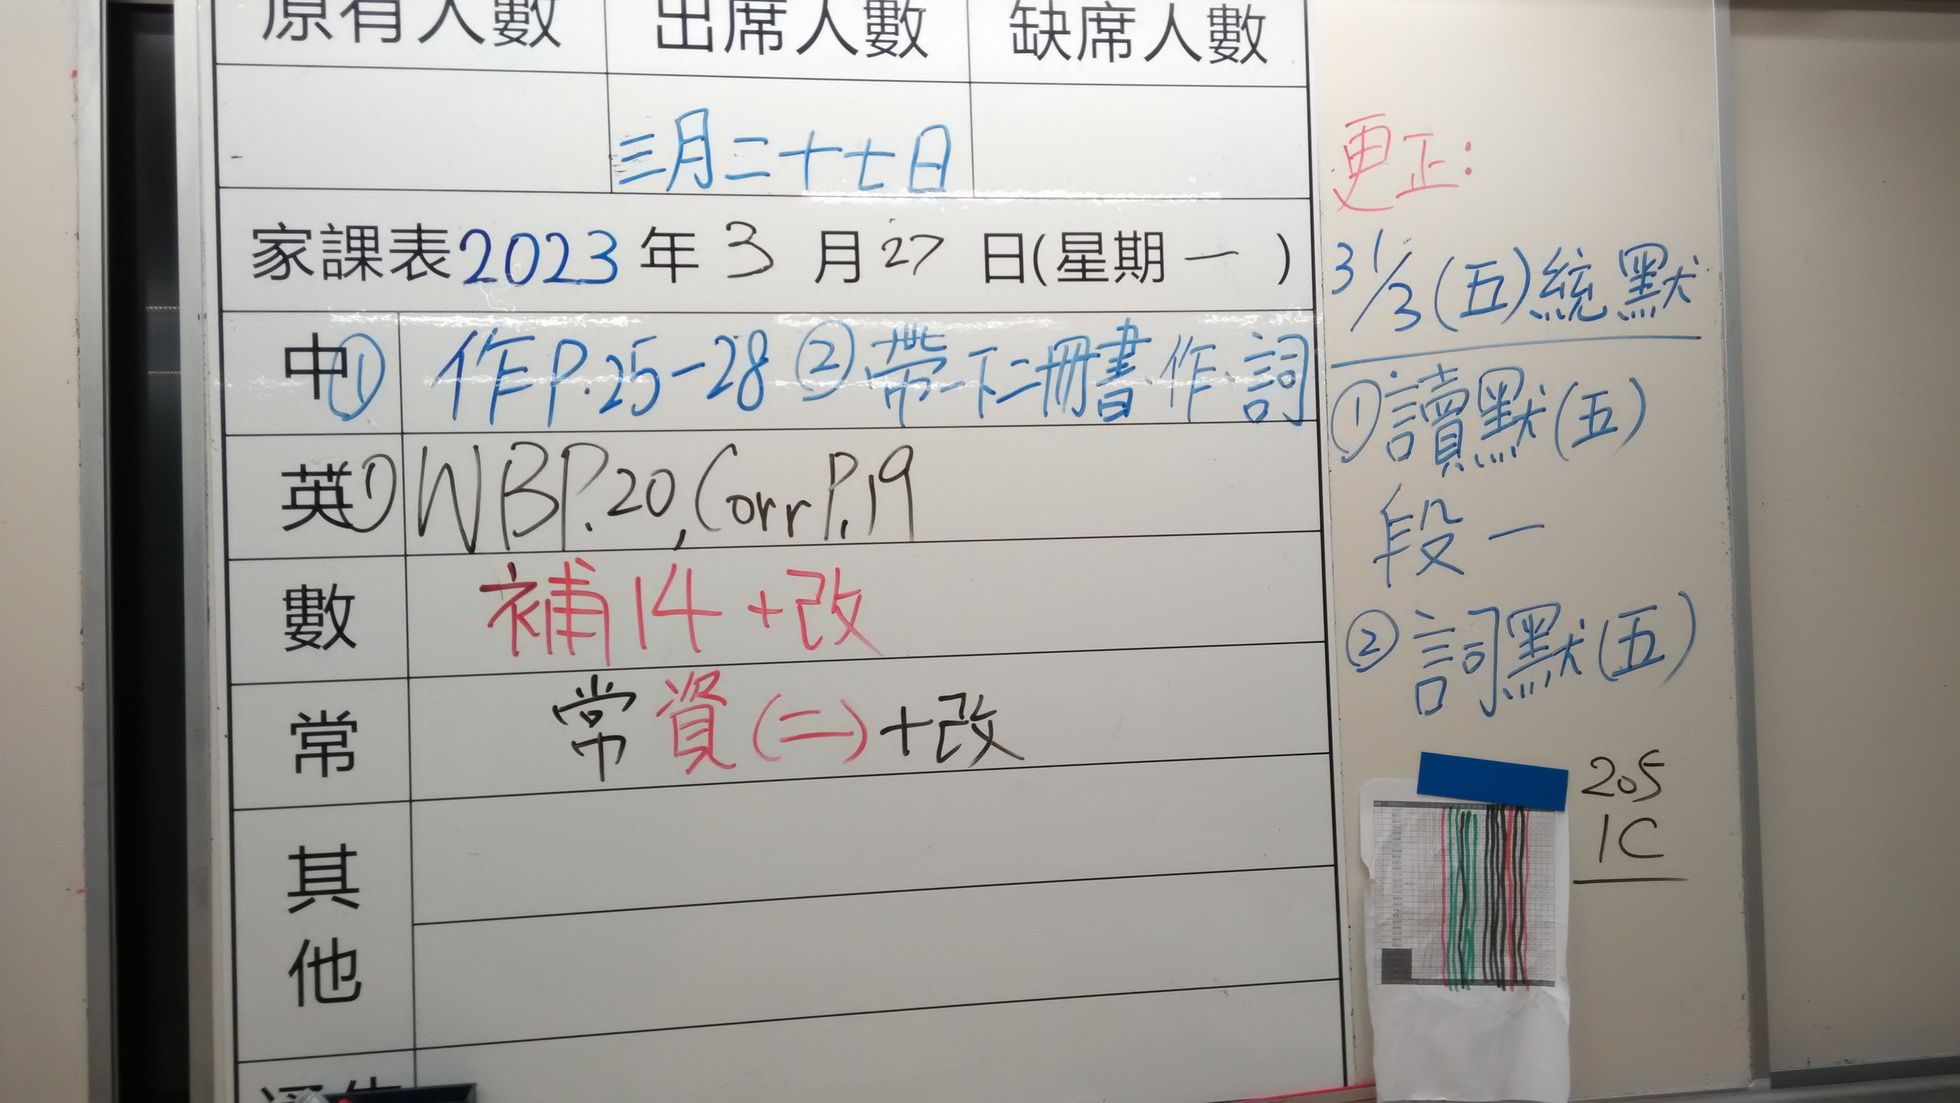 原有人數 出席人數 缺席人數
三月二十七日
家課表2023年3月27日(星期一)
中① 作P.25-28 ②帶下二冊書.作.詞
英① WBP.20, Corr P.19
數 補14+改
常 常資(二)+改
其他
更正:
31/3(五)統默
①讀默(五)
段一
②詞默(五)
205
1C